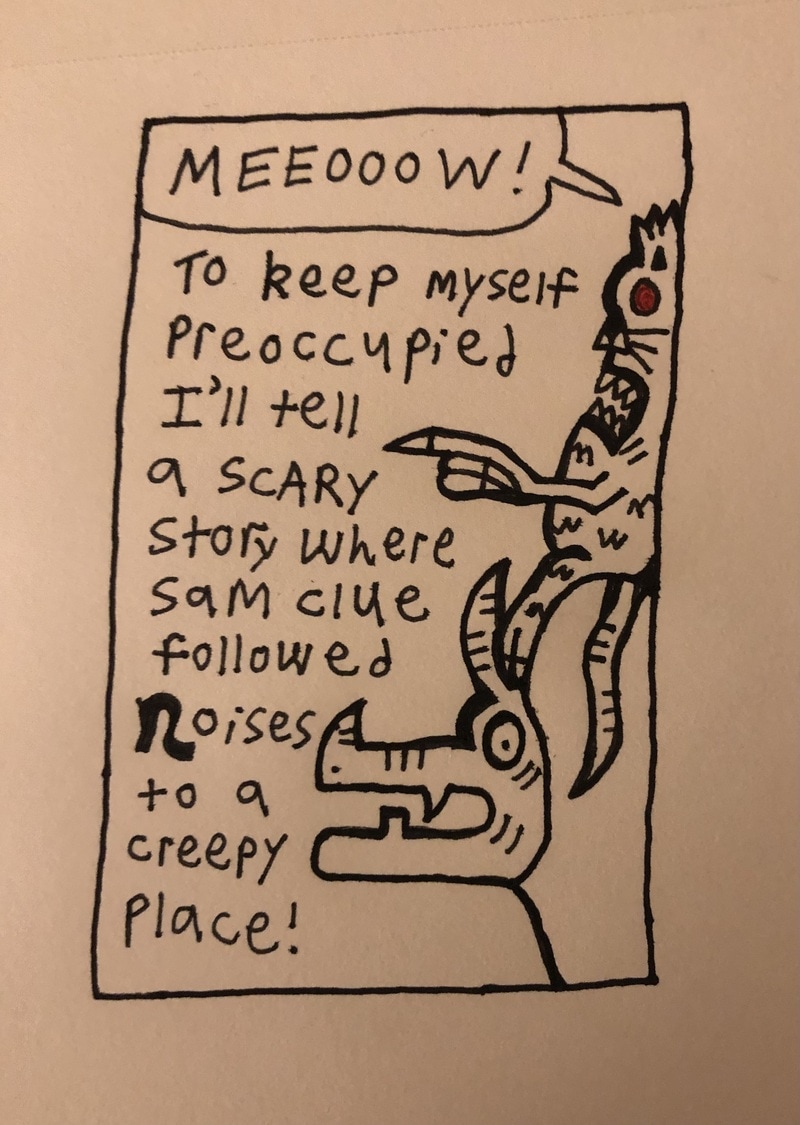 MEEOOOW!
To keep myself
Preoccupied
I'll tell
a SCARY
Story where
SaM clue
followed
Noises
to a
creepy
Place!